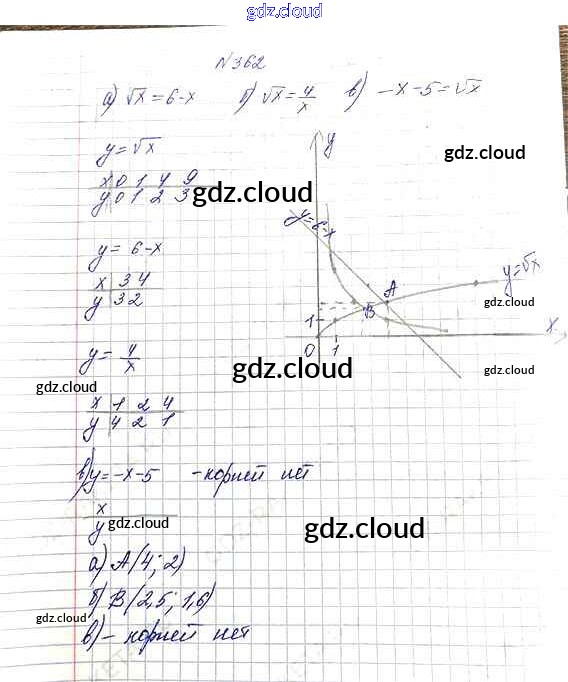 gdz.cloud
N 362
а) √x = 6-x   б) √x = 4/x   в) -x-5=√x
y = √x
x 0 1 4 9
y 0 1 2 3
y = 6-x
x 3 4
y 3 2
y = 4/x
x 1 2 4
y 4 2 1
в) y = -x-5 - корней нет
x
y
а) A(4; 2)
б) B(2,5; 1,6)
в) - корней нет
y
y=6-x
y=√x
A
B
1
x
0 1
gdz.cloud
gdz.cloud
gdz.cloud
gdz.cloud
gdz.cloud
gdz.cloud
gdz.cloud
gdz.cloud
gdz.cloud